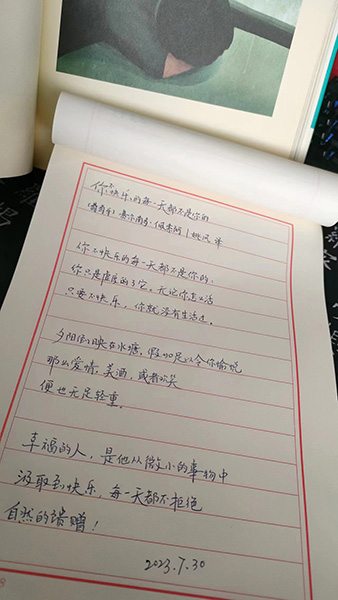 你不快乐的每一天都不是你的
(葡萄牙) 费尔南多·佩索阿 | 姚风 译
你不快乐的每一天都不是你的:
你只是虚度了它。无论你怎么活
只要不快乐,你就没有生活过。
夕阳倒映在水塘,假如足以令你愉悦
那么爱情,美酒,或者欢笑
便也无足轻重。
幸福的人,是他从微小的事物中
汲取到快乐,每一天都不拒绝
自然的馈赠!
2023.7.30